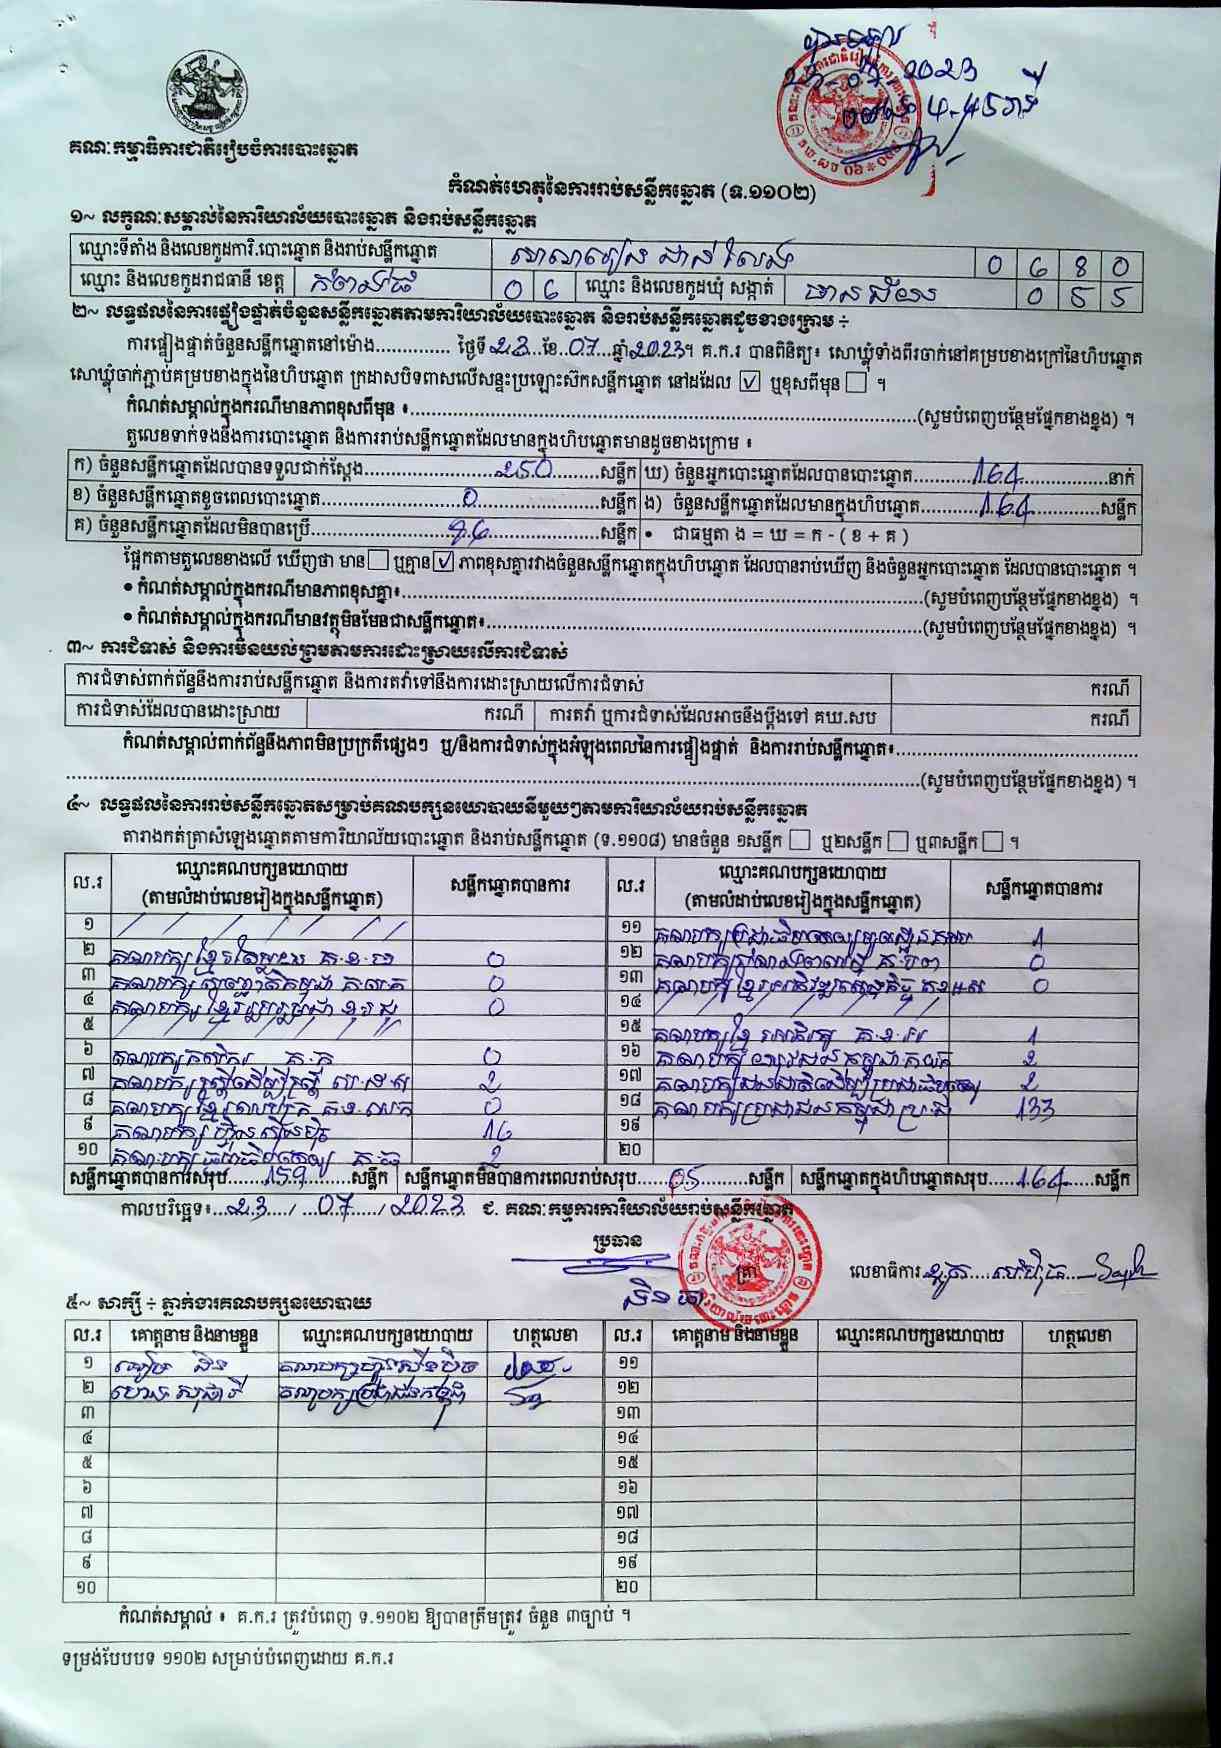 23-07-2023
គណៈកម្មាធិការជាតិរៀបចំការបោះឆ្នោត
កំណត់ហេតុនៃការរាប់សន្លឹកឆ្នោត (ទ.១១០២)
១~ លក្ខណៈសម្គាល់នៃការិយាល័យបោះឆ្នោត និងរាប់សន្លឹកឆ្នោត
ឈ្មោះទីតាំង និងលេខកូដការិ.បោះឆ្នោត និងរាប់សន្លឹកឆ្នោត 0 6 8 0
ឈ្មោះ និងលេខកូដរាជធានី ខេត្ត កំពង់ធំ 0 6 ឈ្មោះ និងលេខកូដឃុំ សង្កាត់ មានជ័យ 0 5 5
២~ លទ្ធផលនៃការផ្ទៀងផ្ទាត់ចំនួនសន្លឹកឆ្នោតតាមការិយាល័យបោះឆ្នោត និងរាប់សន្លឹកឆ្នោតដូចខាងក្រោម ÷
ការផ្ទៀងផ្ទាត់ចំនួនសន្លឹកឆ្នោតនៅម៉ោង.............. ថ្ងៃទី 23 ខែ 07 ឆ្នាំ 2023 ។ គ.ក.រ បានពិនិត្យ៖ សោឃ្លុំទាំងពីរចាក់នៅគម្របខាងក្រៅនៃហិបឆ្នោត
សោឃ្លុំចាក់ភ្ជាប់គម្របខាងក្នុងនៃហិបឆ្នោត ក្រដាសបិទពាសលើសន្ទះប្រឡោះស៊កសន្លឹកឆ្នោត នៅដដែល ☑ ឬខុសពីមុន ☐ ។
កំណត់សម្គាល់ក្នុងករណីមានភាពខុសពីមុន ៖..............(សូមបំពេញបន្ថែមផ្នែកខាងខ្នង) ។
តួលេខទាក់ទងនឹងការបោះឆ្នោត និងការរាប់សន្លឹកឆ្នោតដែលមានក្នុងហិបឆ្នោតមានដូចខាងក្រោម ៖
ក) ចំនួនសន្លឹកឆ្នោតដែលបានទទួលជាក់ស្តែង 250 សន្លឹក ឃ) ចំនួនអ្នកបោះឆ្នោតដែលបានបោះឆ្នោត 164 នាក់
ខ) ចំនួនសន្លឹកឆ្នោតខូចពេលបោះឆ្នោត 0 សន្លឹក ង) ចំនួនសន្លឹកឆ្នោតដែលមានក្នុងហិបឆ្នោត 164 សន្លឹក
គ) ចំនួនសន្លឹកឆ្នោតដែលមិនបានប្រើ 86 សន្លឹក • ជាធម្មតា ង = ឃ = ក - ( ខ + គ )
ផ្អែកតាមតួលេខខាងលើ ឃើញថា មាន ☐ ឬគ្មាន ☑ ភាពខុសគ្នារវាងចំនួនសន្លឹកឆ្នោតក្នុងហិបឆ្នោត ដែលបានរាប់ឃើញ និងចំនួនអ្នកបោះឆ្នោត ដែលបានបោះឆ្នោត ។
• កំណត់សម្គាល់ក្នុងករណីមានភាពខុសគ្នា៖..............(សូមបំពេញបន្ថែមផ្នែកខាងខ្នង) ។
• កំណត់សម្គាល់ក្នុងករណីមានវត្ថុមិនមែនជាសន្លឹកឆ្នោត៖..............(សូមបំពេញបន្ថែមផ្នែកខាងខ្នង) ។
៣~ ការជំទាស់ និងការមិនយល់ព្រមតាមការដោះស្រាយលើការជំទាស់
ការជំទាស់ពាក់ព័ន្ធនឹងការរាប់សន្លឹកឆ្នោត និងការតវ៉ាទៅនឹងការដោះស្រាយលើការជំទាស់ ករណី
ការជំទាស់ដែលបានដោះស្រាយ ករណី ការតវ៉ា ឬការជំទាស់ដែលអាចនឹងប្តឹងទៅ គឃ.សប ករណី
កំណត់សម្គាល់ពាក់ព័ន្ធនឹងភាពមិនប្រក្រតីផ្សេងៗ ឬ/និងការជំទាស់ក្នុងអំឡុងពេលនៃការផ្ទៀងផ្ទាត់ និងការរាប់សន្លឹកឆ្នោត៖..............
..............(សូមបំពេញបន្ថែមផ្នែកខាងខ្នង) ។
៤~ លទ្ធផលនៃការរាប់សន្លឹកឆ្នោតសម្រាប់គណបក្សនយោបាយនីមួយៗតាមការិយាល័យរាប់សន្លឹកឆ្នោត
តារាងកត់ត្រាសំឡេងឆ្នោតតាមការិយាល័យបោះឆ្នោត និងរាប់សន្លឹកឆ្នោត (ទ.១១០៨) មានចំនួន ១សន្លឹក ☐ ឬ២សន្លឹក ☐ ឬ៣សន្លឹក ☐ ។
ល.រ ឈ្មោះគណបក្សនយោបាយ (តាមលំដាប់លេខរៀងក្នុងសន្លឹកឆ្នោត) សន្លឹកឆ្នោតបានការ ល.រ ឈ្មោះគណបក្សនយោបាយ (តាមលំដាប់លេខរៀងក្នុងសន្លឹកឆ្នោត) សន្លឹកឆ្នោតបានការ
១ ១១ គណបក្ស 1
២ គណបក្សខ្មែរ 0 ១២ គណបក្ស 0
៣ គណបក្ស 0 ១៣ គណបក្សខ្មែរ 0
៤ គណបក្សខ្មែរ 0 ១៤
៥ ១៥ គណបក្សខ្មែរ 1
៦ គណបក្សកសិករ គ.ក 0 ១៦ គណបក្សយុវជនកម្ពុជា 2
៧ គណបក្សស្ត្រីដើម្បីស្ត្រី 2 ១៧ គណបក្ស 2
៨ គណបក្សខ្មែរ 0 ១៨ គណបក្សប្រជាជនកម្ពុជា 133
៩ គណបក្សហ៊្វុនស៊ិនប៉ិច 16 ១៩
១០ គណបក្សធម្មាធិបតេយ្យ គ.ធ 2 ២០
សន្លឹកឆ្នោតបានការសរុប 159 សន្លឹក សន្លឹកឆ្នោតមិនបានការពេលរាប់សរុប 05 សន្លឹក សន្លឹកឆ្នោតក្នុងហិបឆ្នោតសរុប 164 សន្លឹក
កាលបរិច្ឆេទ៖ 23 / 07 / 2023 ជ. គណៈកម្មការការិយាល័យរាប់សន្លឹកឆ្នោត
ប្រធាន
ត្រា
លេខាធិការ
៥~ សាក្សី ÷ ភ្នាក់ងារគណបក្សនយោបាយ
ល.រ គោត្តនាម និងនាមខ្លួន ឈ្មោះគណបក្សនយោបាយ ហត្ថលេខា ល.រ គោត្តនាម និងនាមខ្លួន ឈ្មោះគណបក្សនយោបាយ ហត្ថលេខា
១ គណបក្សហ៊្វុនស៊ិនប៉ិច ១១
២ គណបក្សប្រជាជនកម្ពុជា ១២
៣ ១៣
៤ ១៤
៥ ១៥
៦ ១៦
៧ ១៧
៨ ១៨
៩ ១៩
១០ ២០
កំណត់សម្គាល់ ៖ គ.ក.រ ត្រូវបំពេញ ទ.១១០២ ឱ្យបានត្រឹមត្រូវ ចំនួន ៣ច្បាប់ ។
ទម្រង់បែបបទ ១១០២ សម្រាប់បំពេញដោយ គ.ក.រ